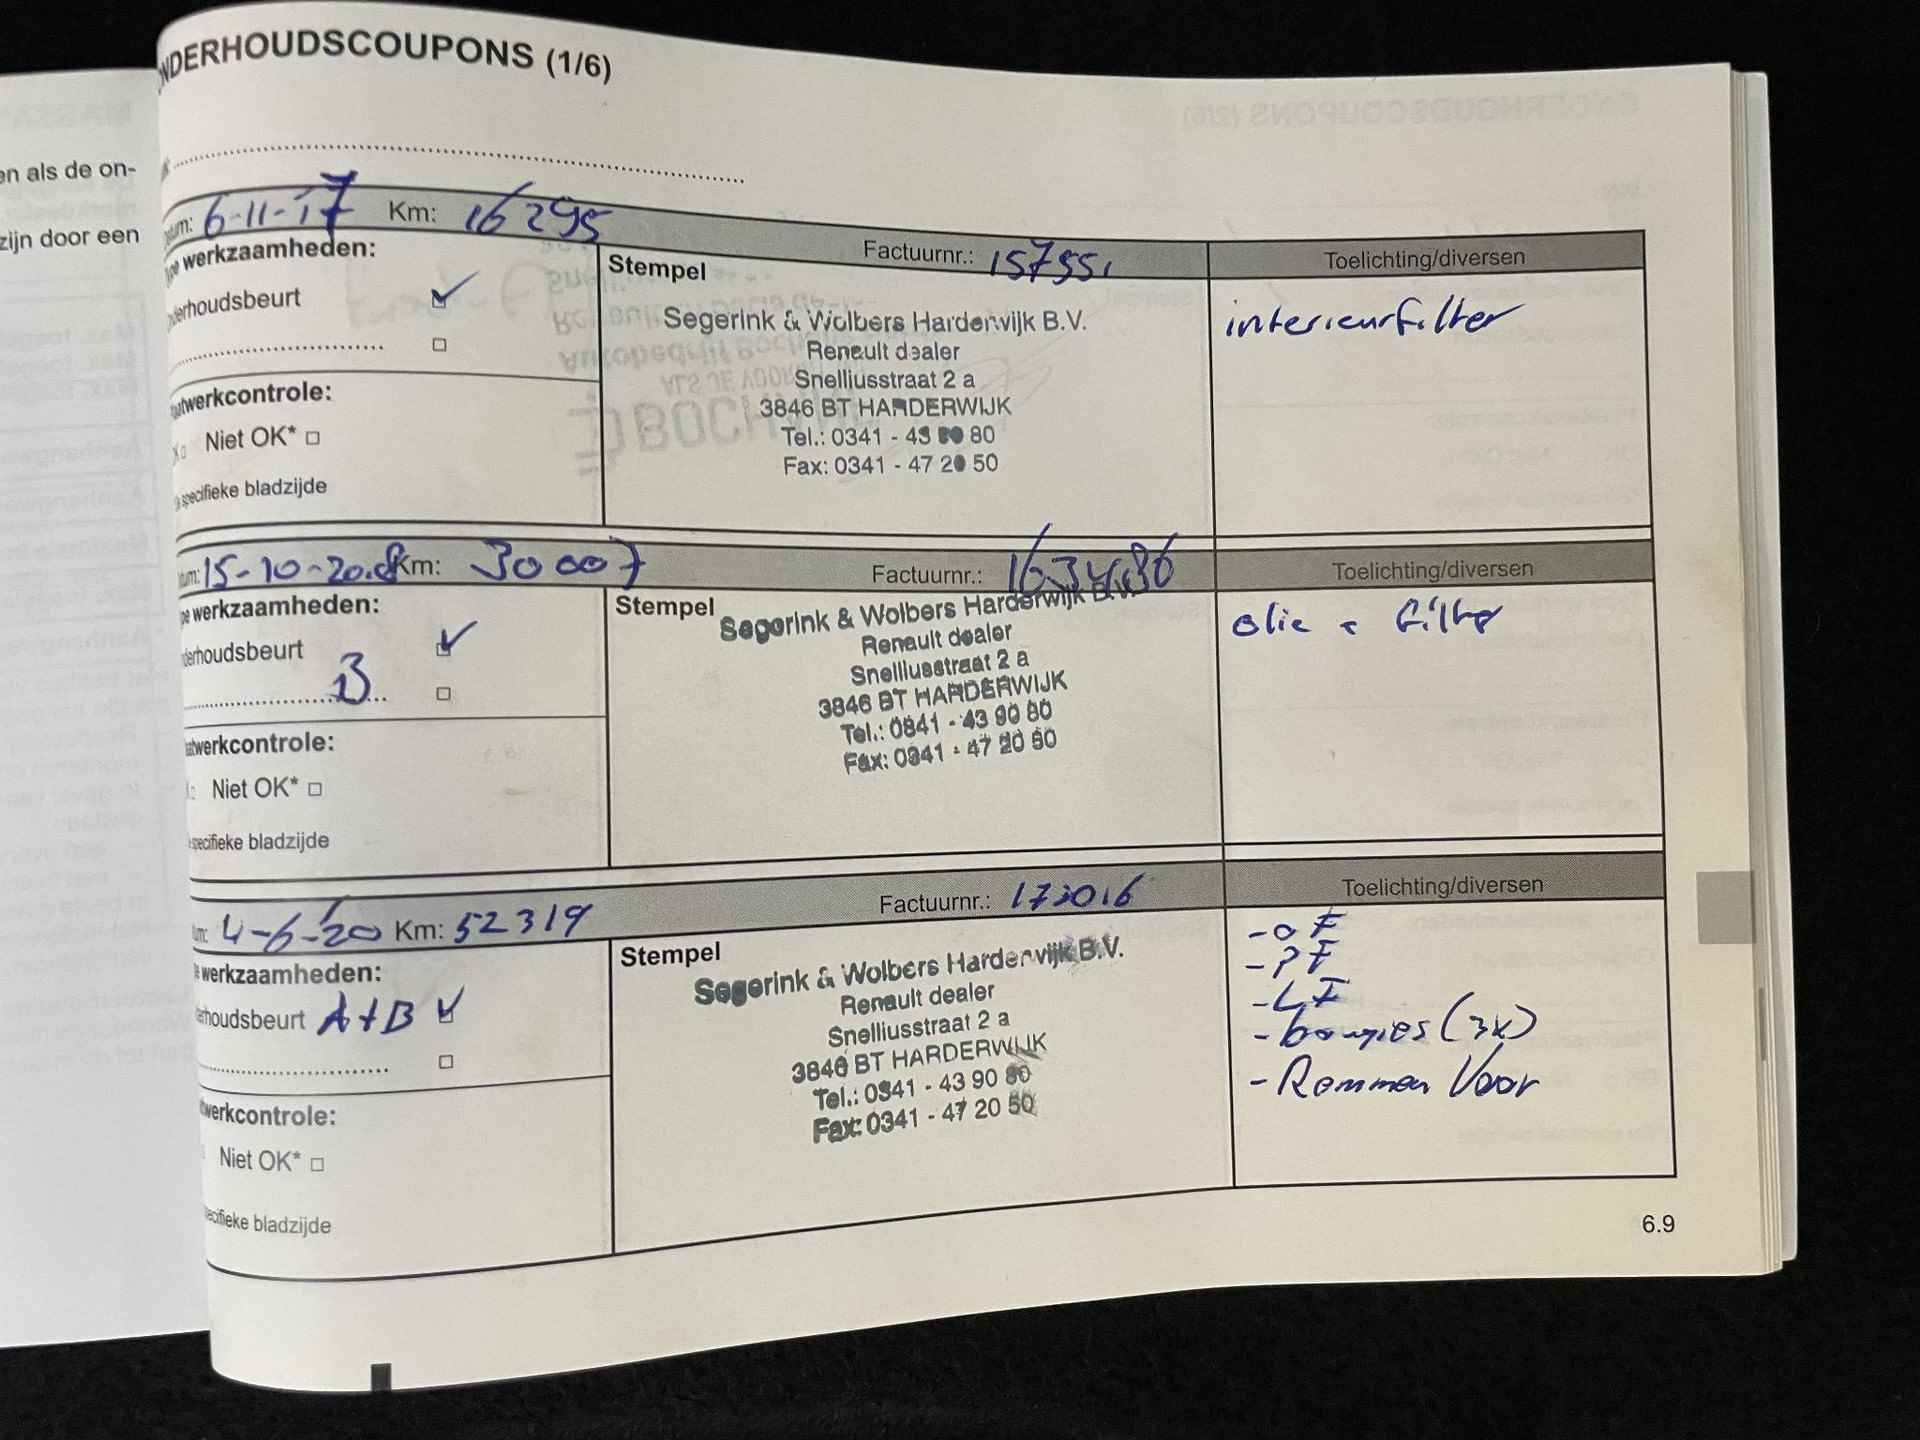 ONDERHOUDSCOUPONS (1/6)
en als de on-
zijn door een
6-11-17 Km: 16295 Factuurnr.: 157551 Toelichting/diversen
werkzaamheden:
Stempel
interieurfilter
derhoudsbeurt
Segerink & Wolbers Harderwijk B.V.
Renault dealer
Snelliusstraat 2 a
3846 BT HARDERWIJK
Tel.: 0341 - 43 90 80
Fax: 0341 - 47 20 50
werkcontrole:
Niet OK*
specifieke bladzijde
15-10-2018 Km: 30007 Factuurnr.: Toelichting/diversen
werkzaamheden:
Stempel
olie + filter
derhoudsbeurt
B
Segerink & Wolbers Harderwijk B.V.
Renault dealer
Snelliusstraat 2 a
3846 BT HARDERWIJK
Tel.: 0341 - 43 90 80
Fax: 0341 - 47 20 50
werkcontrole:
Niet OK*
specifieke bladzijde
4-6-20 Km: 52319 Factuurnr.: 172016 Toelichting/diversen
werkzaamheden:
Stempel
erhoudsbeurt A+B
Segerink & Wolbers Harderwijk B.V.
Renault dealer
Snelliusstraat 2 a
3846 BT HARDERWIJK
Tel.: 0341 - 43 90 80
Fax: 0341 - 47 20 50
- OF
- PF
- LF
- bougies (3x)
- Remmen Voor
werkcontrole:
Niet OK*
ecifieke bladzijde
6.9